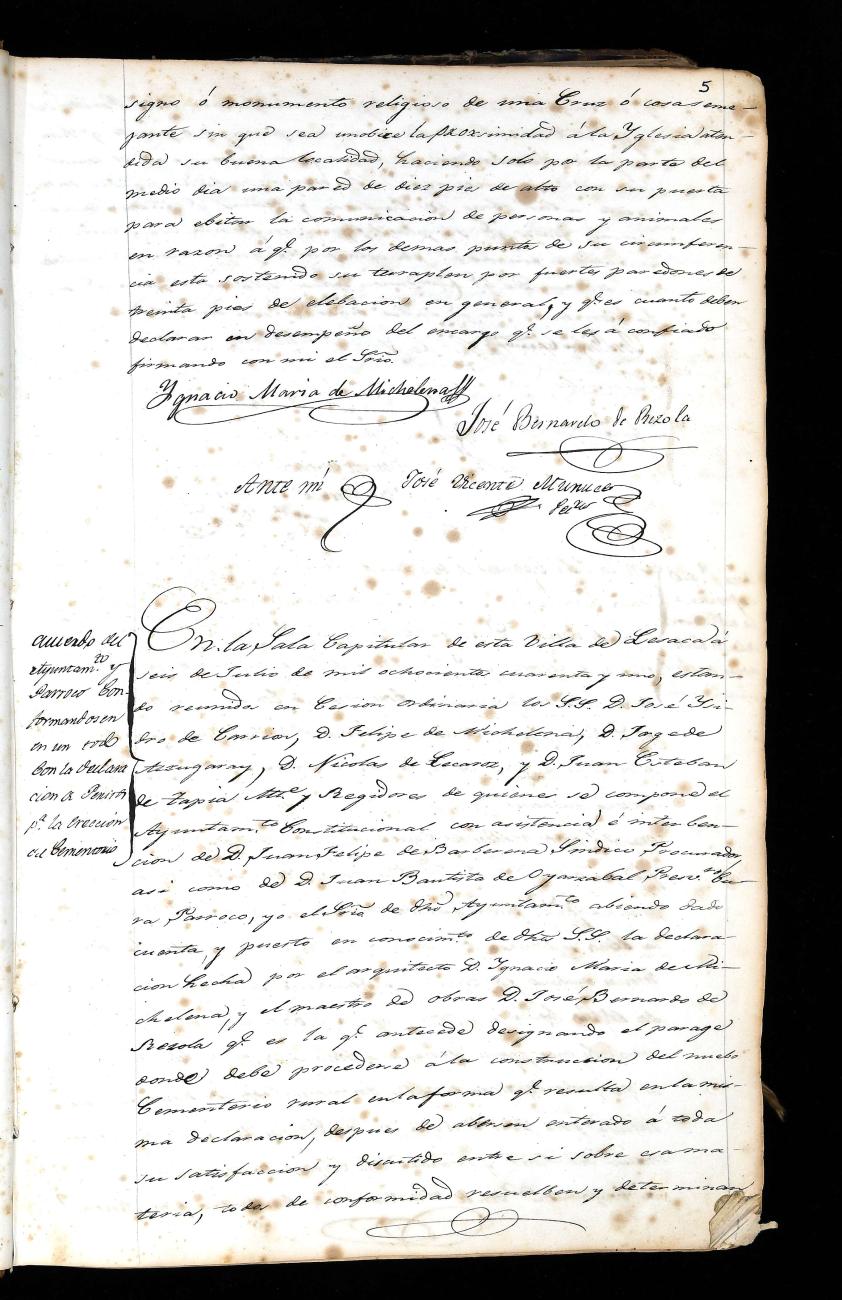 5
signo ó monumento religioso de una Cruz ó cosa seme-
jante sin que sea unobice la proxsimidad á la Yglesia aten-
dida su buena localidad, haciendo solo por la parte del
medio dia una pared de diez pies de alto con su puerta
para ebitar la comunicacion de personas y animales
en razon á qe. por los demas puntos de su circumferen-
cia esta sostenido su terraplen por fuertes paredones de
veinta pies de elebacion en general, y qe. es cuanto deben
declarar en desempeño del encargo qe. se les á confiado
firmando con mi el Srio.
Ygnacio Maria de Michelena
José Bernardo de Rezola
Ante mi José Vicente
acuerdo del
Ayuntam.to y
Parroco Con-
formandosen
en un todo
Con la declara
cion de Peritos
pa. la Ereccion
del Cementerio
En la Sala Capitular de esta Villa de Lesaca á
seis de Julio de mil ochocientos cuarenta y uno, estan-
do reunidos en Cesion ordinaria los S.S. D. José Ysi-
dro de Carrion, D. Felipe de Michelena, D. Jorge de
Arzugaray, D. Nicolas de Lecaroz, y D. Juan Esteban
de Tapia Alce. y Regidores de quienes se compone el
Ayuntam.to Constitucional con asistencia é interben-
cion de D. Juan Felipe de Barberena Sindico Procurador
asi como de D. Juan Bautista de Oyarzabal Presv.ro Cu-
ra Parroco, yo el Srio. de dho Ayuntam.to abiendo dado
cuenta, y puesto en conocim.to de dhos S.S. la declara-
cion hecha por el arquitecto D. Ygnacio Maria de Mi-
chelena, y el maestro de obras D. José Bernardo de
Rezola qe. es la qe. antecede designando el parage
donde debe procederse á la construccion del nuebo
Cementerio rural en la forma qe. resulta en la mis-
ma declaracion, despues de abersen enterado á toda
su satisfaccion y discutido entre si sobre esa ma-
teria, todos de conformidad resuelben y determinan